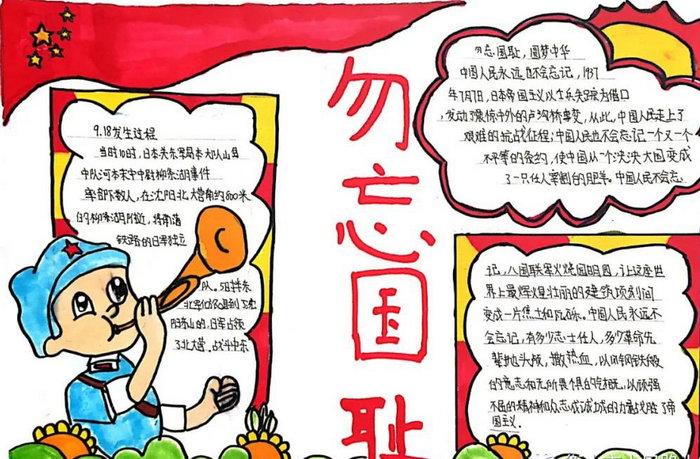 勿忘国耻
9.18发生过程
当时10时,日本关东军
中队河本末守中尉柳条湖事件
率部下数人,在沈阳北大营南约800米
的柳条湖附近,将南满
铁路的
队。5日
了北大营。战斗中东
勿忘国耻,圆梦中华
中国人民永远也不会忘记,1937
年7月7日,日本帝国主义以士兵失踪为借口
,发动了震惊中外的卢沟桥事变,从此,中国人民走上了
艰难的抗战征程;中国人民也不会忘记一个又一个
不平等的条约,使中国从一个泱泱大国变成
了一只任人宰割的肥羊。中国人民不会忘
记,八国联军火烧圆明园,让这座世
界上最辉煌壮丽的建筑顷刻间
变成一片焦土和瓦砾。中国人民永远不
会忘记,有多少志士仁人,多少革命先
辈抛头颅,撒热血,以闪钢铁般
的意志和无所畏惧的气概,以顽强
不屈的精神和众志成城的力量战胜了帝
国主义.